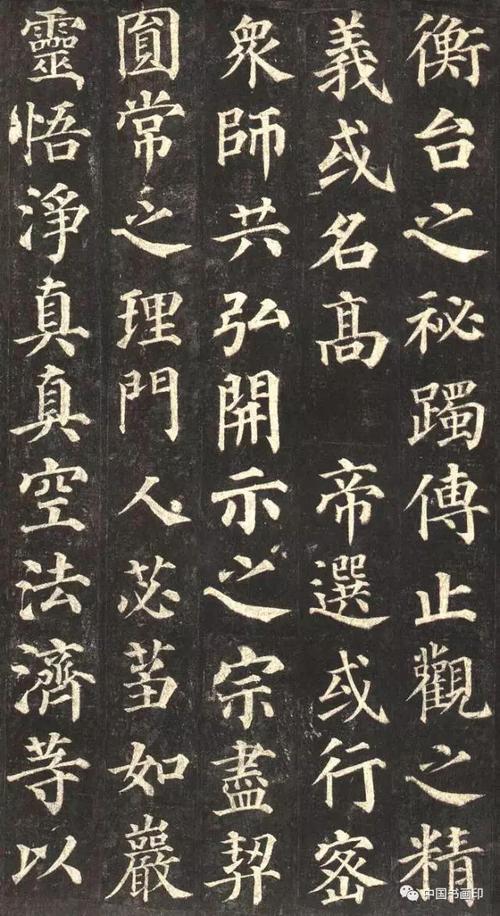 衡台之秘躅傳止觀之精
義或名高 帝選或行密
衆師共弘開示之宗盡契
圓常之理門人苾蒭如巖
靈悟淨真真空法濟等以
中国书画印